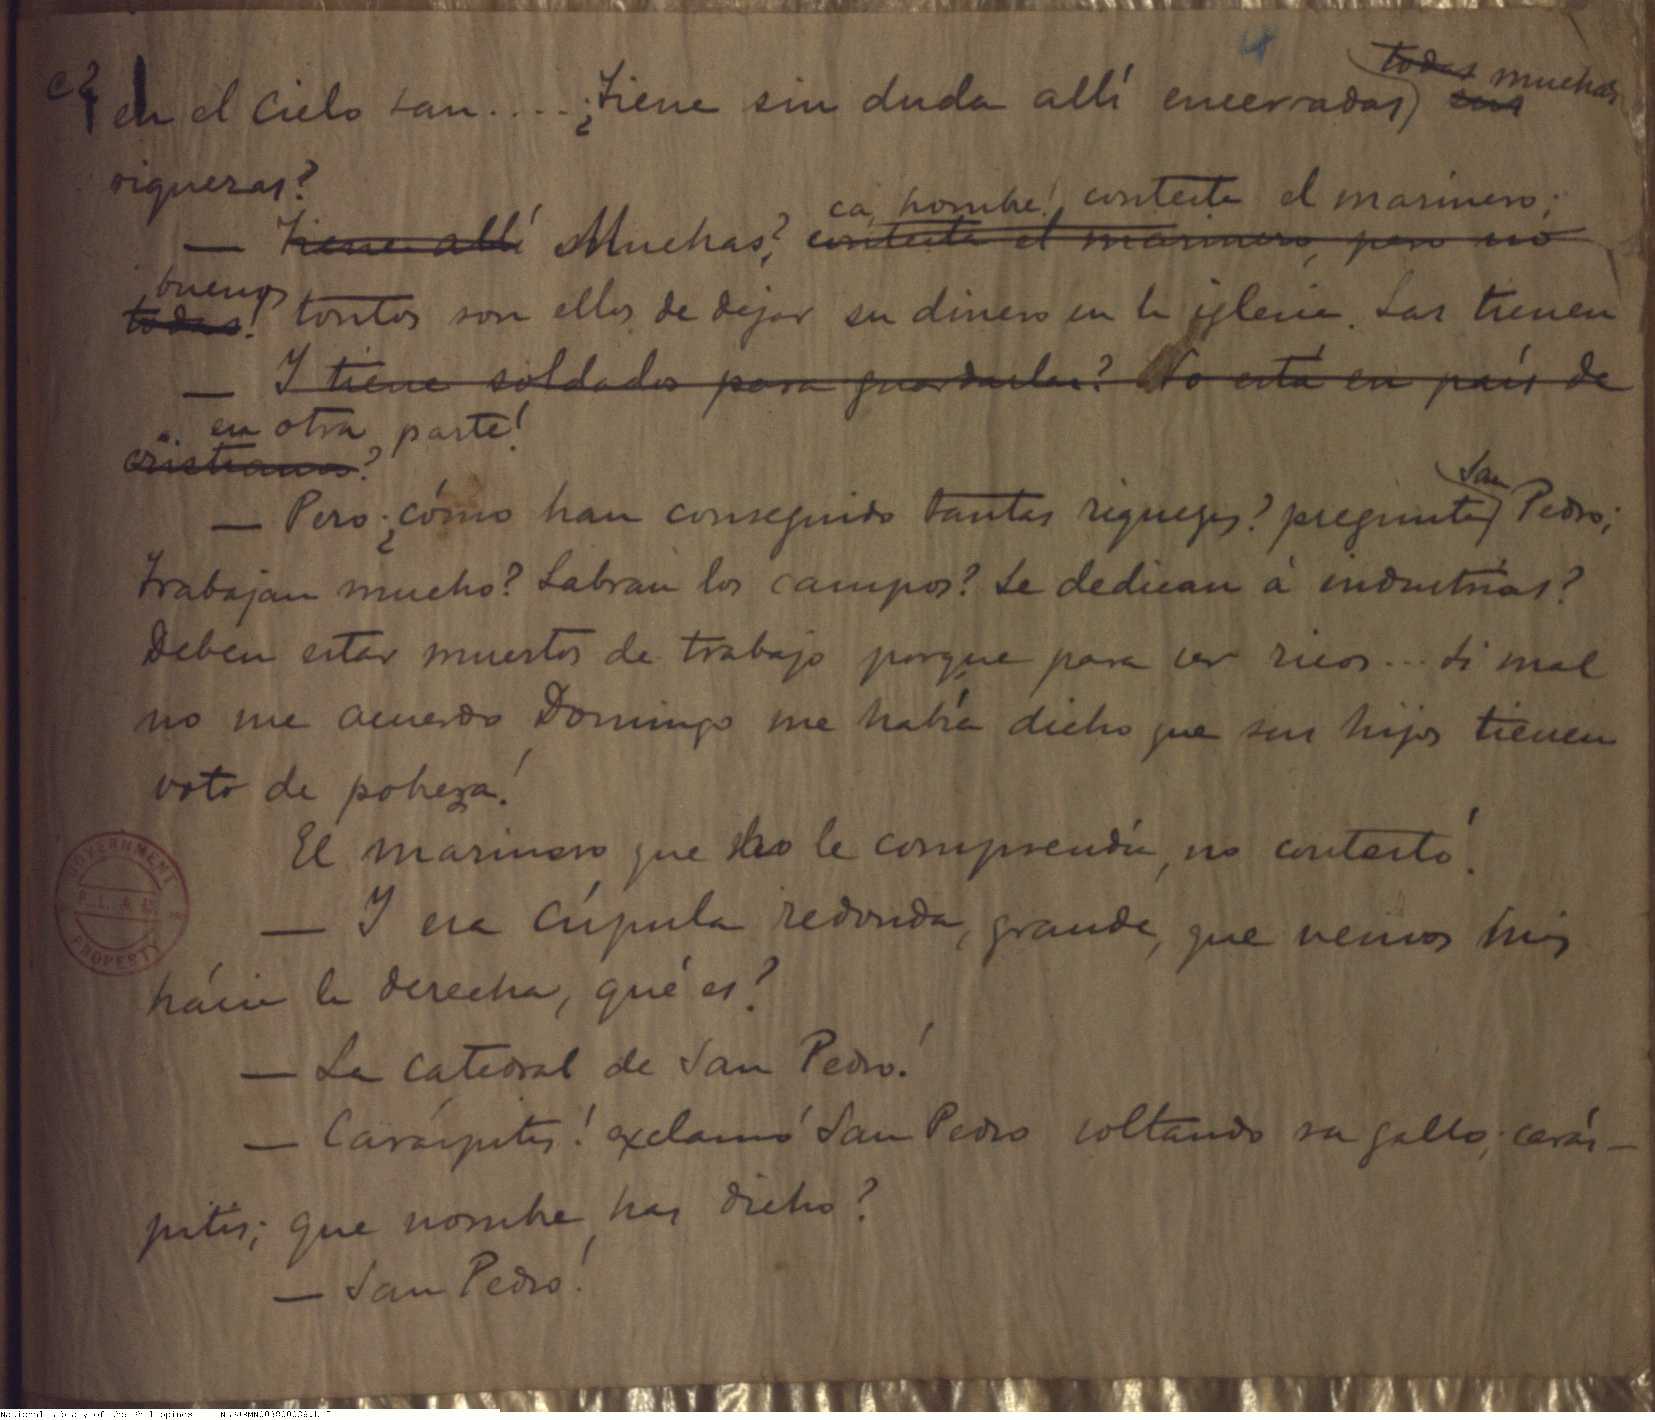 en el cielo tan.... ¿Tiene sin duda allí encerradas todas muchas sus
riquezas?
— Tiene allí Muchas? ca, hombre! contesta el marinero;
contesta el marinero, pero no
buenos
todas! tontos son ellos de dejar su dinero en la iglesia. Las tienen
— Y tiene soldados para guardarlas? No está en país de
en otra parte!
cristianos?
— Pero ¿cómo han conseguido tantas riquezas? pregunta San Pedro;
trabajan mucho? Labran los campos? Se dedican á industrias?
Deben estar muertos de trabajo porque para ser ricos... Si mal
no me acuerdo Domingo me había dicho que sus hijos tienen
voto de pobreza!
El marinero, que no le comprendía, no contestó.
— Y esa cúpula redonda, grande, que vemos
hácia la derecha, qué es?
— La catedral de San Pedro!
— Caráspitis! exclamó San Pedro soltando su gallo; carás-
pitis; que nombre has dicho?
— San Pedro!
GOVERNMENT
PROPERTY
National Library of the Philippines